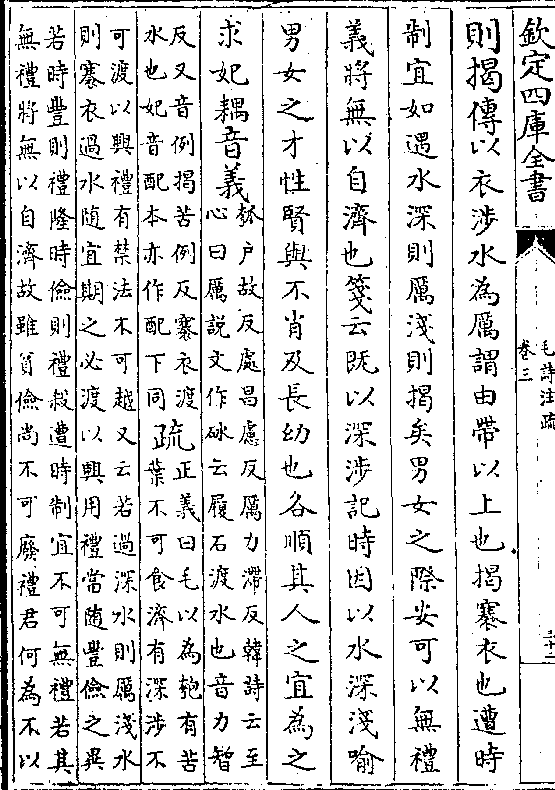 欽定四庫全書
毛詩注疏
卷三
二十二
則揭傳以衣涉水為厲謂由帶以上也揭褰衣也遭時
制宜如遇水深則厲淺則揭矣男女之際安可以無禮
義將無以自濟也箋云既以深涉記時因以水深淺喻
男女之才性賢與不肖及長幼也各順其人之宜為之
求妃耦音義
瓠户故反處昌慮反厲力滯反韓詩云至
心曰厲説文作砅云履石渡水也音力智
反又音例揭苦例反褰衣渡
水也妃音配本亦作配下同
疏
正義曰毛以為匏有苦
葉不可食濟有深涉不
可渡以興禮有禁法不可越又云若過深水則厲淺水
則褰衣過水随宜期之必渡以興用禮當随豐儉之異
若時豐則禮隆時儉則禮殺遭時制宜不可無禮若其
無禮將無以自濟故雖貧儉尚不可廢禮君何為不以